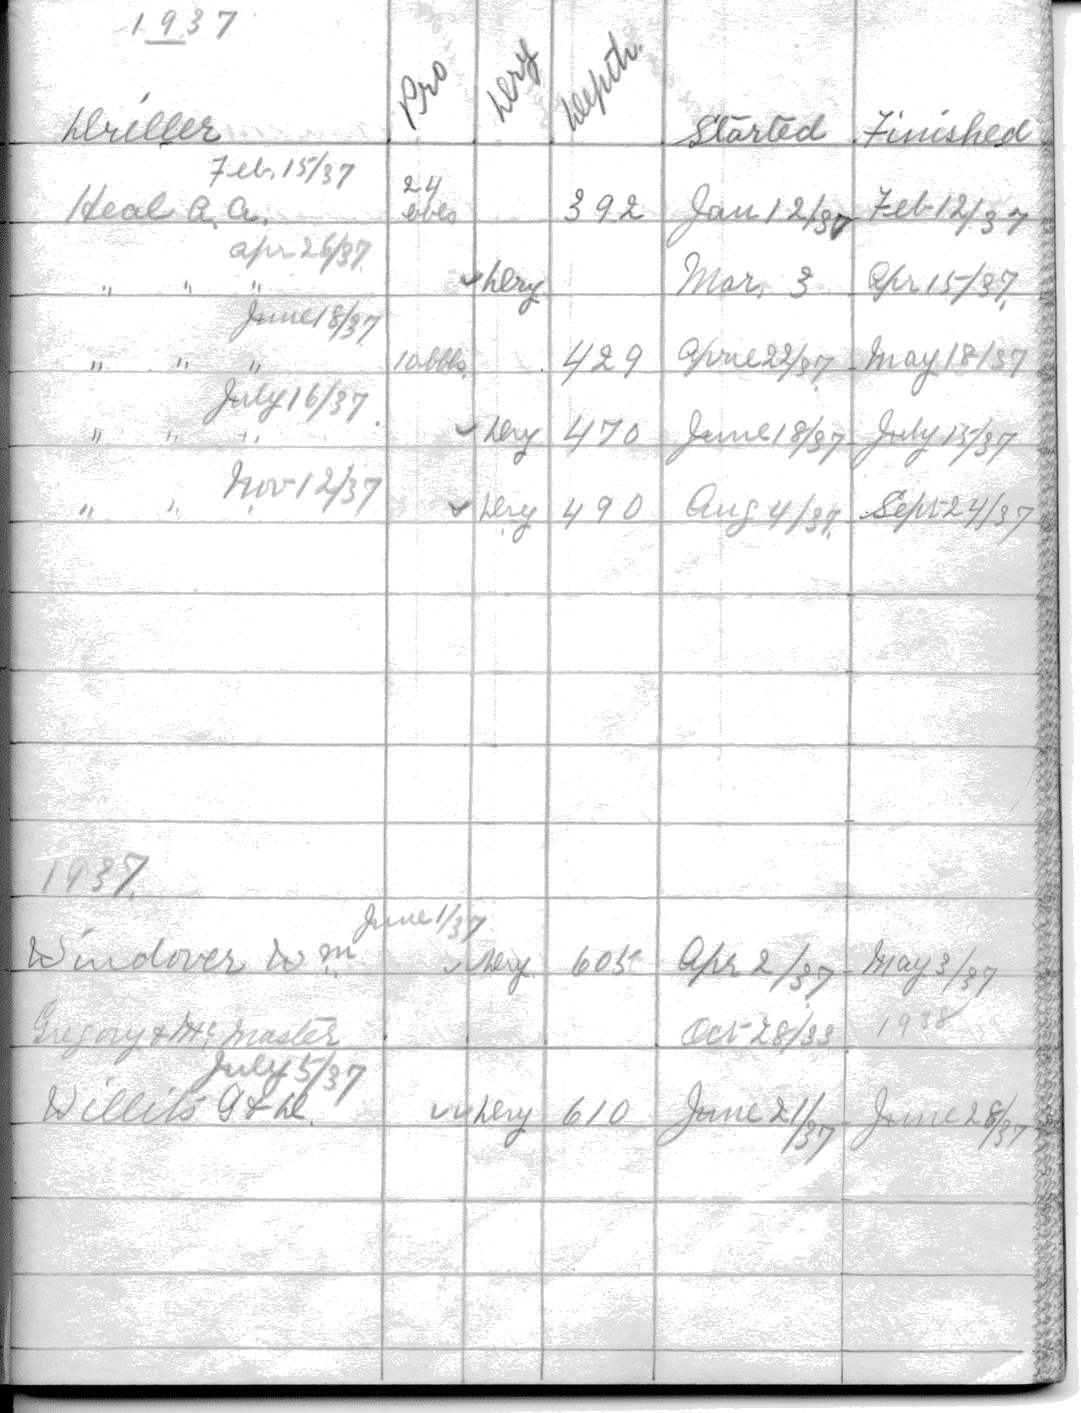 1937
Driller Pro Dry Depth. Started Finished
Feb. 15/37
Heal A. A. 24 bbls 392 Jan 12/37 Feb 12/37
Apr 26/37
" " " ✓ Dry Mar. 3 Apr 15/37
June 18/37
" " " 10 bbls. 429 Aprie 22/37 May 18/37
July 16/37
" " " ✓ Dry 470 June 18/37 July 15/37
Nov 12/37
" " " ✓ Dry 490 Aug 4/37 Sept 24/37
1937
June 1/37
Windover Wm ✓ Dry 605 Apr 2/37 May 3/37
Gregory & McMaster Oct 28/33 1938
July 5/37
Willits G & D. ✓✓ Dry 610 June 21/37 June 28/37